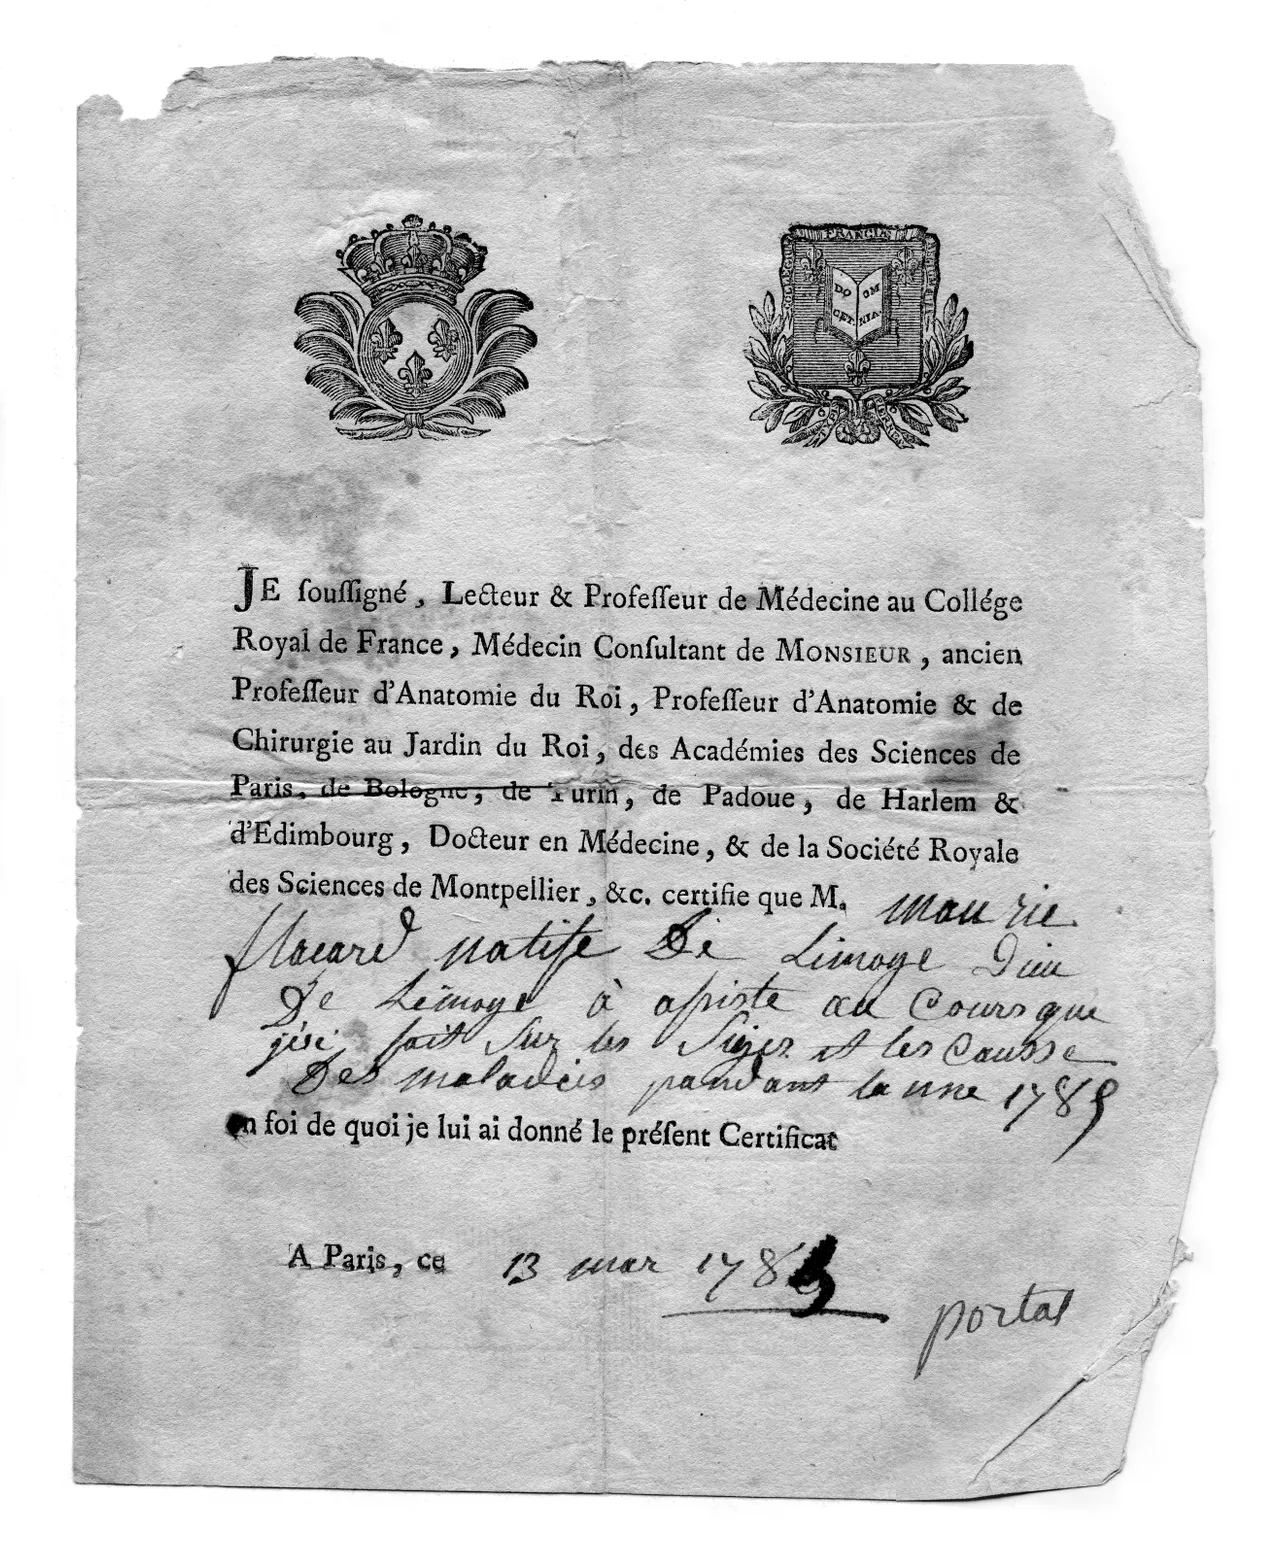 FRANCIÆ
DO OM
CET NIA.
JE souſſigné, Lecteur & Profeſſeur de Médecine au Collége
Royal de France, Médecin Conſultant de MONSIEUR, ancien
Profeſſeur d'Anatomie du Roi, Profeſſeur d'Anatomie & de
Chirurgie au Jardin du Roi, des Académies des Sciences de
Paris, de Bologne, de Turin, de Padoue, de Harlem &
d'Edimbourg, Docteur en Médecine, & de la Société Royale
des Sciences de Montpellier, &c. certifie que M. maurie
flacard natife De Limoge Diu
De Limoge à aſiste au Cours que
j'ei fait Sur les Sijes et les Causse
Des maladeis pandant la nne 1785
en foi de quoi je lui ai donné le préſent Certificat
A Paris, ce 13 mar 1785
portal